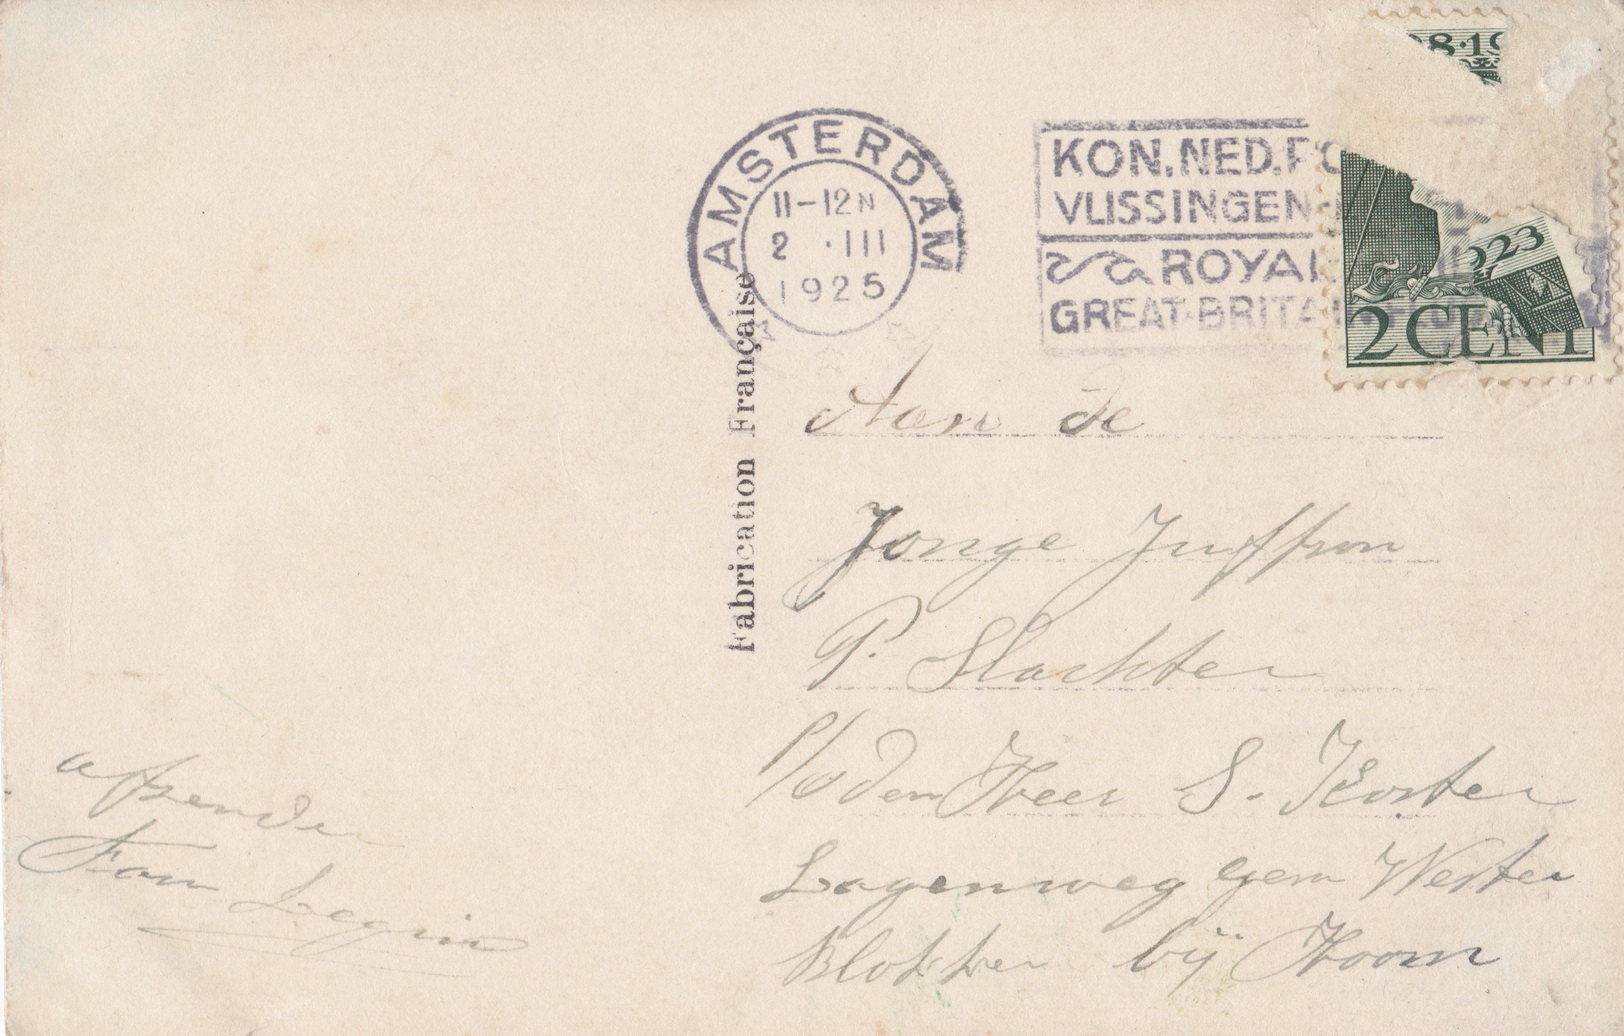 AMSTERDAM
11-12N
2 ·III
1925
KON.NED.PO
VLISSINGEN
ROYAL
GREAT-BRITA
8·19
1923
2 CENT
Fabrication Française
Aan de
Jonge Juffrou
P. Slachter
p/o den Heer S. Koster
Lagenweg gem Wester
Blokker bij Hoorn
afzender
Fam